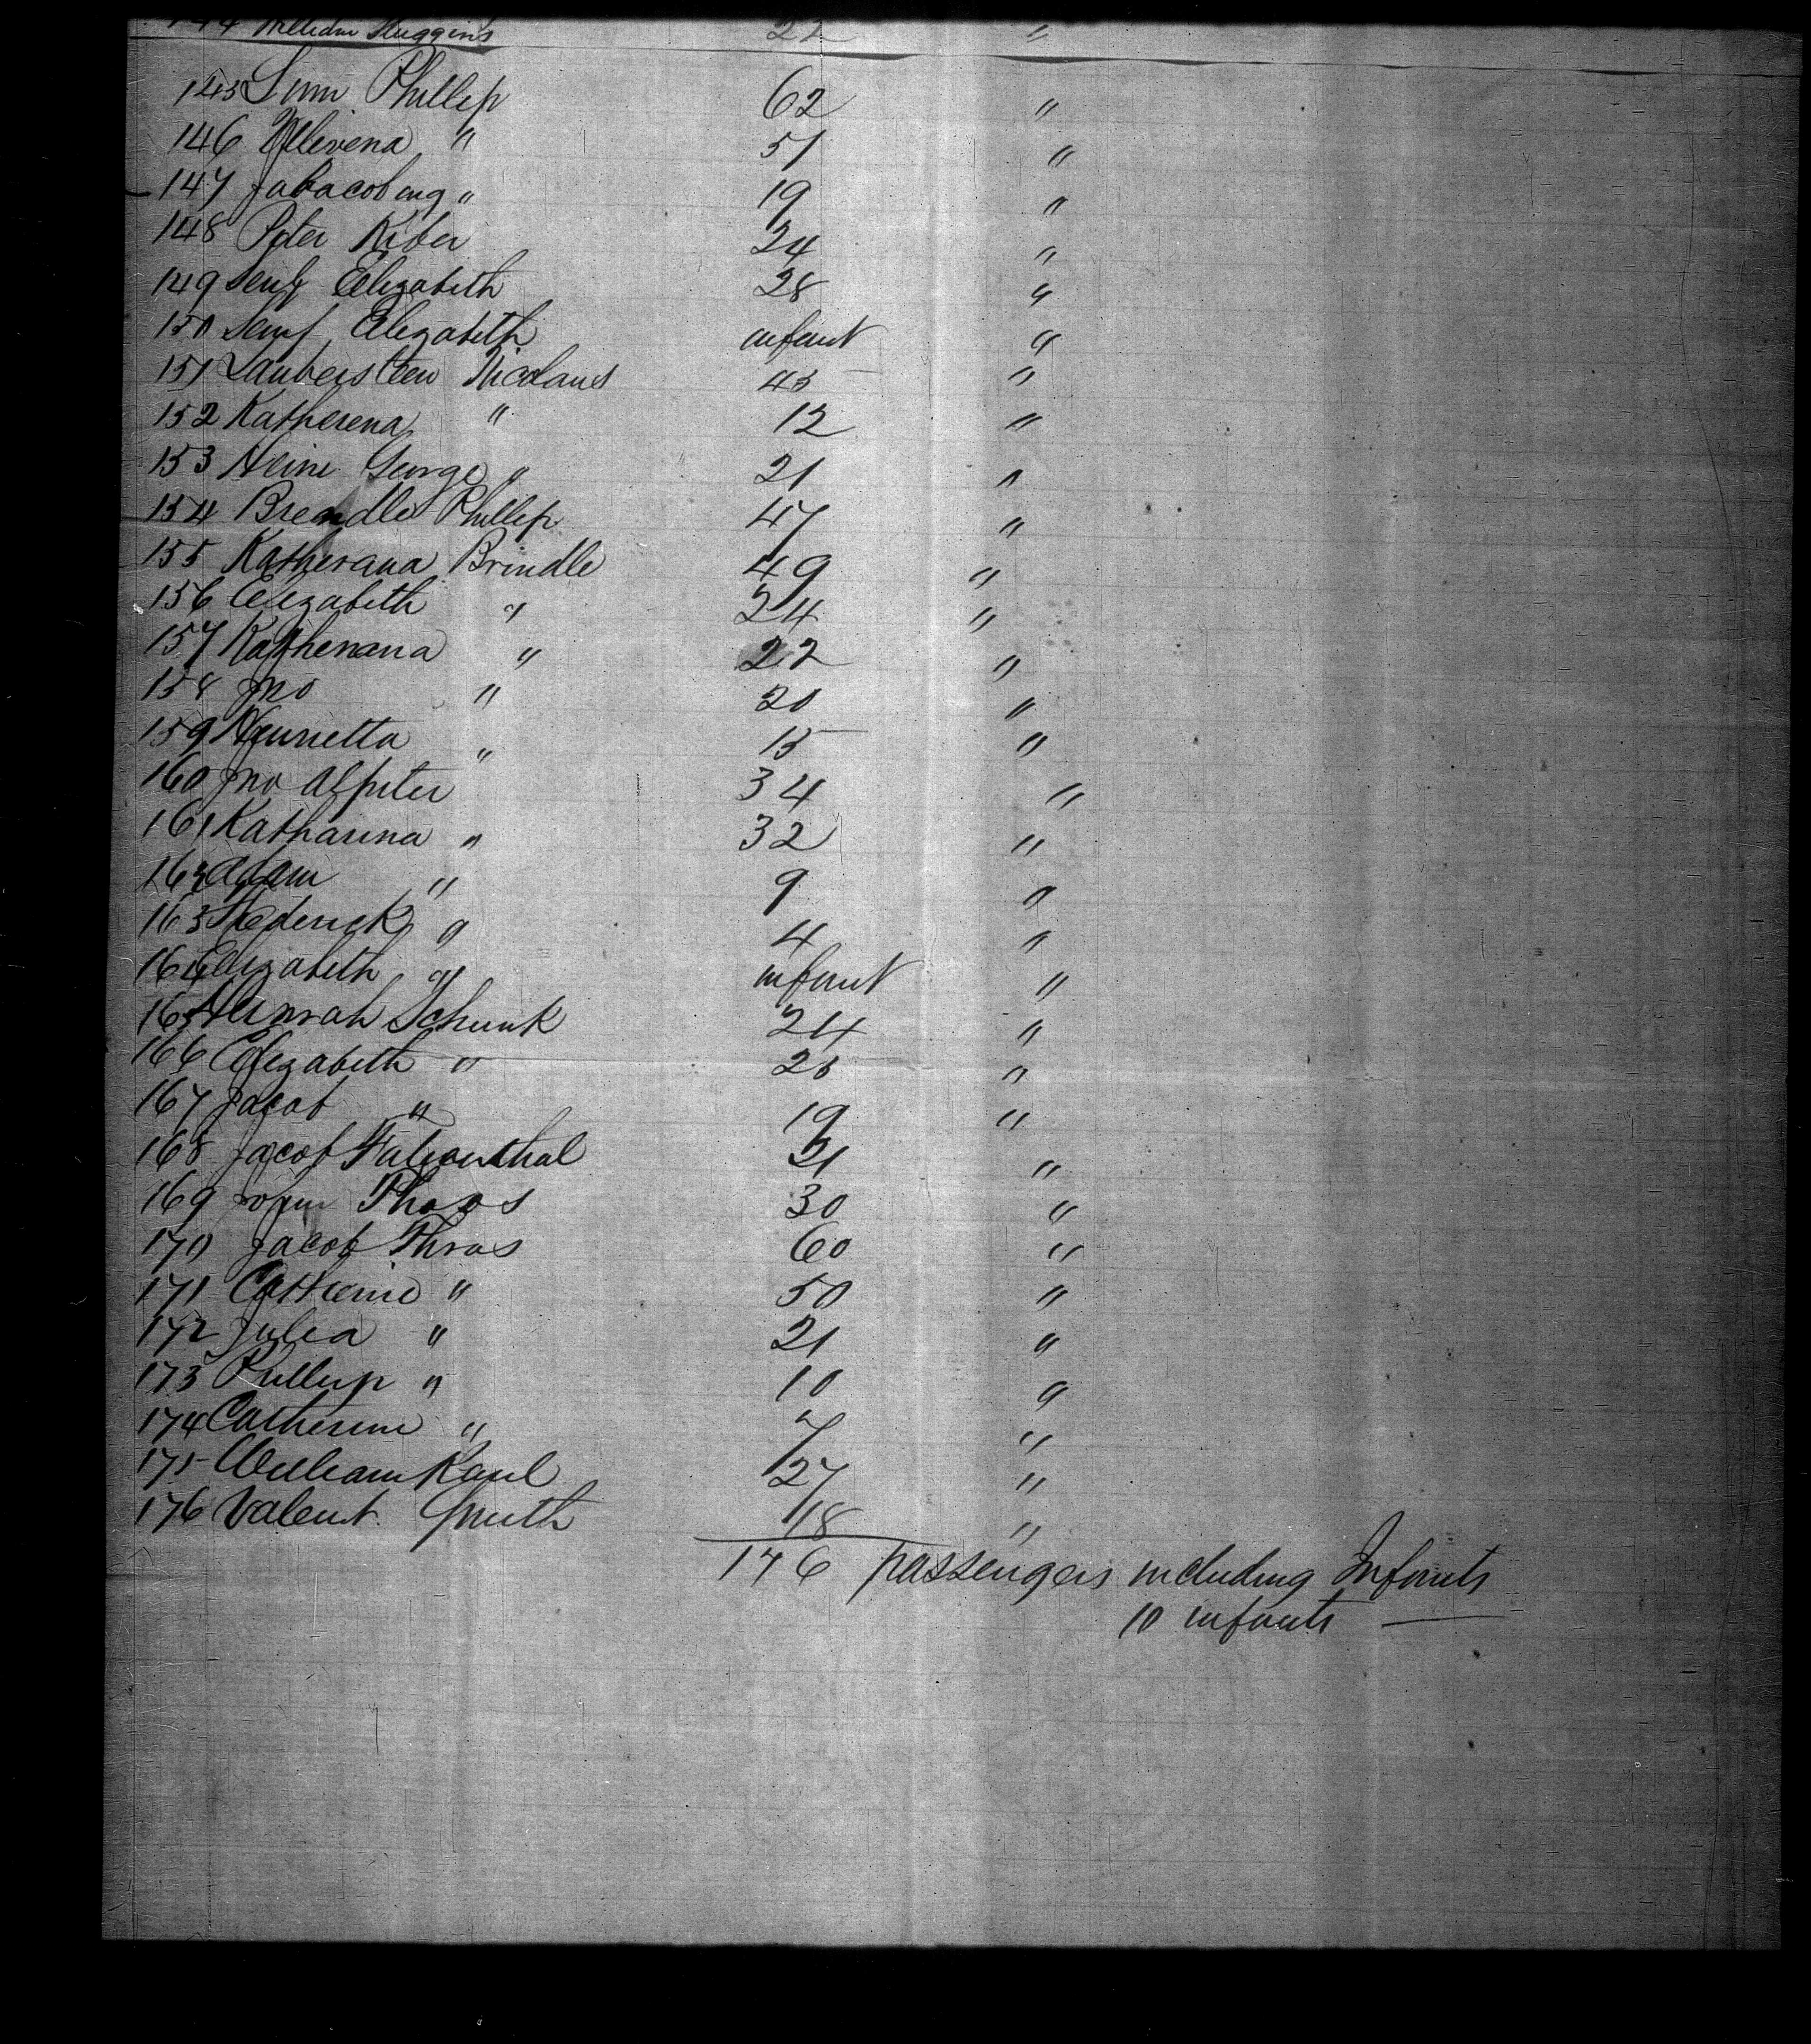 144 William Huggins 22 "
145 Phillip 62 "
146 " 51 "
147 " 19 "
148 Peter Kiber 24 "
149 Senf Elizabeth 28 "
150 Senf Elezabeth infant "
151 Laubersteen Nicolaus 45 "
152 Katherena " 12 "
153 Heine George " 21 "
154 Brendle Phillip 47 "
155 Katherana Brindle 49 "
156 Elizabeth " 24 "
157 Katherana " 22 "
158 Jno " 20 "
159 Henrietta " 15 "
160 Jno Alpeter 34 "
161 Katharina " 32 "
162 Adam " 9 "
163 Frederick " 4 "
164 Elizabeth " infant "
165 Schunk 24 "
166 Elezabeth " 25 "
167 Jacob " 19 "
168 Jacob 21 "
169 John Thras 30 "
170 Jacob Thras 60 "
171 Catherine " 50 "
172 Julia " 21 "
173 Phillip " 10 "
174 Catherine " 7 "
175 William Kaul 27 "
176 Valent. Smith 18 "
176 passengers including Infants
10 infants